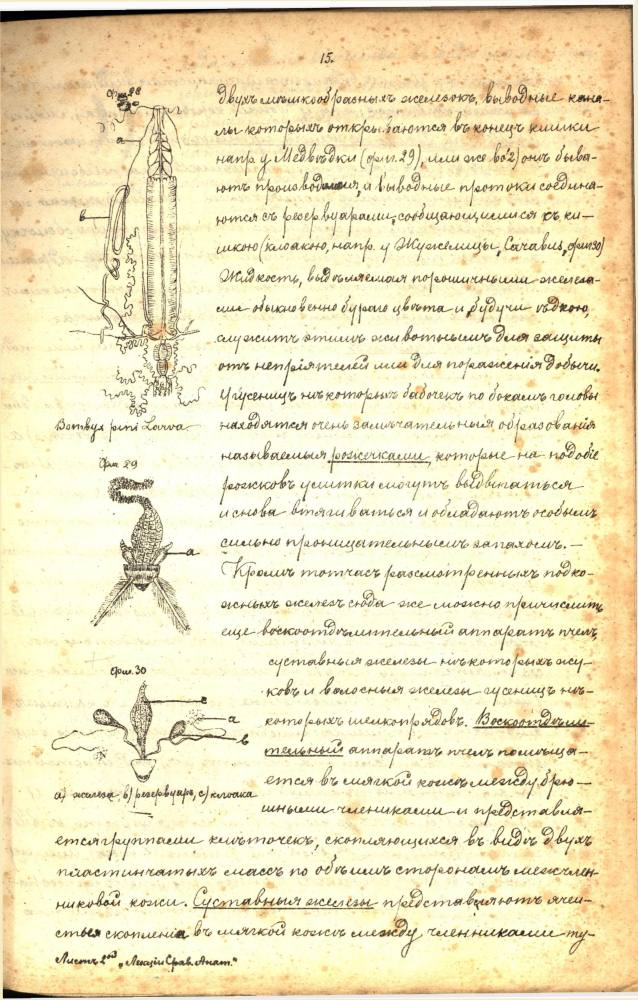 15.
Фиг 28
двухъ мѣшкообразныхъ железокъ, выводные кана-
лы которыхъ открываются въ конецъ кишки
a
напр. у Медвѣдки (фиг. 29), или же во 2) онѣ быва-
ютъ производ и выводные протоки соединя-
b
ются съ резервуарами, сообщающимися съ ки-
шкою (клоакою, напр. у Жужелицы, Carabus, фиг 30)
Жидкость, выдѣляемая порошичными железа-
ми обыкновенно бураго цвѣта и, будучи ѣдкою,
служитъ этимъ животнымъ для защиты
отъ непріятелей или для пораженія добычи.
У гусеницъ нѣкоторыхъ бабочекъ по бокамъ головы
Bombyx pini Larva.
находятся очень замѣчательныя образованія
называемыя рожечками, которые на подобіе
Фиг 29
рожковъ улитки могутъ выдвигаться
и снова втягиваться и обладаютъ особымъ
сильно проницательнымъ запахомъ. —
a
Кромѣ тотчасъ разсмотренныхъ подко-
жныхъ железъ сюда же можно причислить
еще воскоотдѣлительный аппаратъ пчелъ,
суставныя железы нѣкоторыхъ жу-
Фиг. 30
ковъ и волосныя железы гусеницъ нѣ-
c
a
b
которыхъ шелкопрядовъ. Воскоотдѣли-
тельный аппаратъ пчелъ помѣща-
ется въ мягкой кожѣ между брю-
a) железа, b) резервуаръ, c) клоака
шными члениками и представля-
ется группами клѣточекъ, скопляющихся въ видѣ двухъ
пластинчатыхъ массъ по обѣимъ сторонамъ межчлен-
никовой кожи. Суставныя железы представляютъ ячеи-
стыя скопленія въ мягкой кожѣ между членниками ту-
Листъ 2ой „Лекціи Срав. Анат."